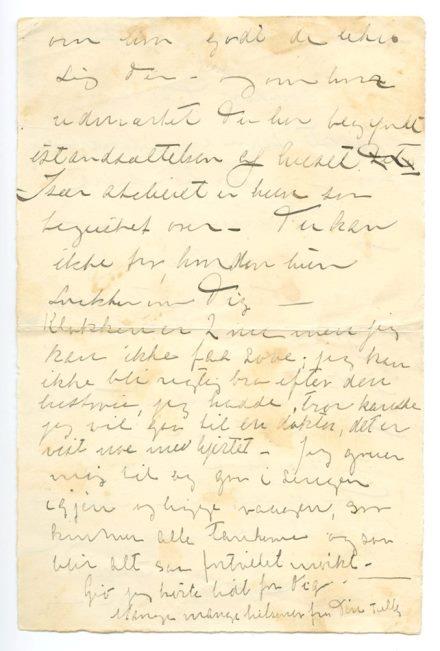 om hun godt de ikke
Dig der – og om hvor
udmærket Du har begyndt
istandsættelsen af huset.
Især atelieret er hun saa
begeistret over – Du kan
ikke tro, hvordan hun
snakker om Dig —
Klokken er 2 nu men jeg
kan ikke faa sove, jeg kan
ikke bli rigtig bra efter den
historie, jeg hadde, tror kanske
jeg vil gaa til en doktor, det er
vist noe med hjertet – Jeg gruer
mig til at gaa i sengen
igjen og ligge vaagen, saa
kommer alle tankerne og saa
blir alt saa fortvilet mørkt. —
Gid jeg hørte lidt fra Dig –
Mange mange hilsener fra Din Tulla